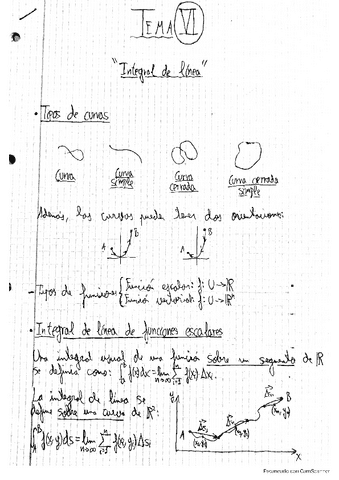 TEMA VI
"Integral de línea"
• Tipos de curvas
Curva
Curva simple
Curva cerrada
Curva cerrada simple
Además, las curvas pueden tener dos orientaciones:
A B
A B
- Tipos de funciones: { Función escalar: f: U → ℝ
Función vectorial: f: U → ℝⁿ
• Integral de línea de funciones escalares
Una integral usual de una función sobre un segmento de ℝ
se definía como: ∫ₐᵇ f(x)dx = lim n→∞ Σ i=1 n f(x) Δxᵢ
La integral de línea se
define sobre una curva de ℝ²:
∫ A B f(x,y)ds = lim n→∞ Σ i=1 n f(x,y) Δsᵢ
y
A
B
x
Escaneado con CamScanner